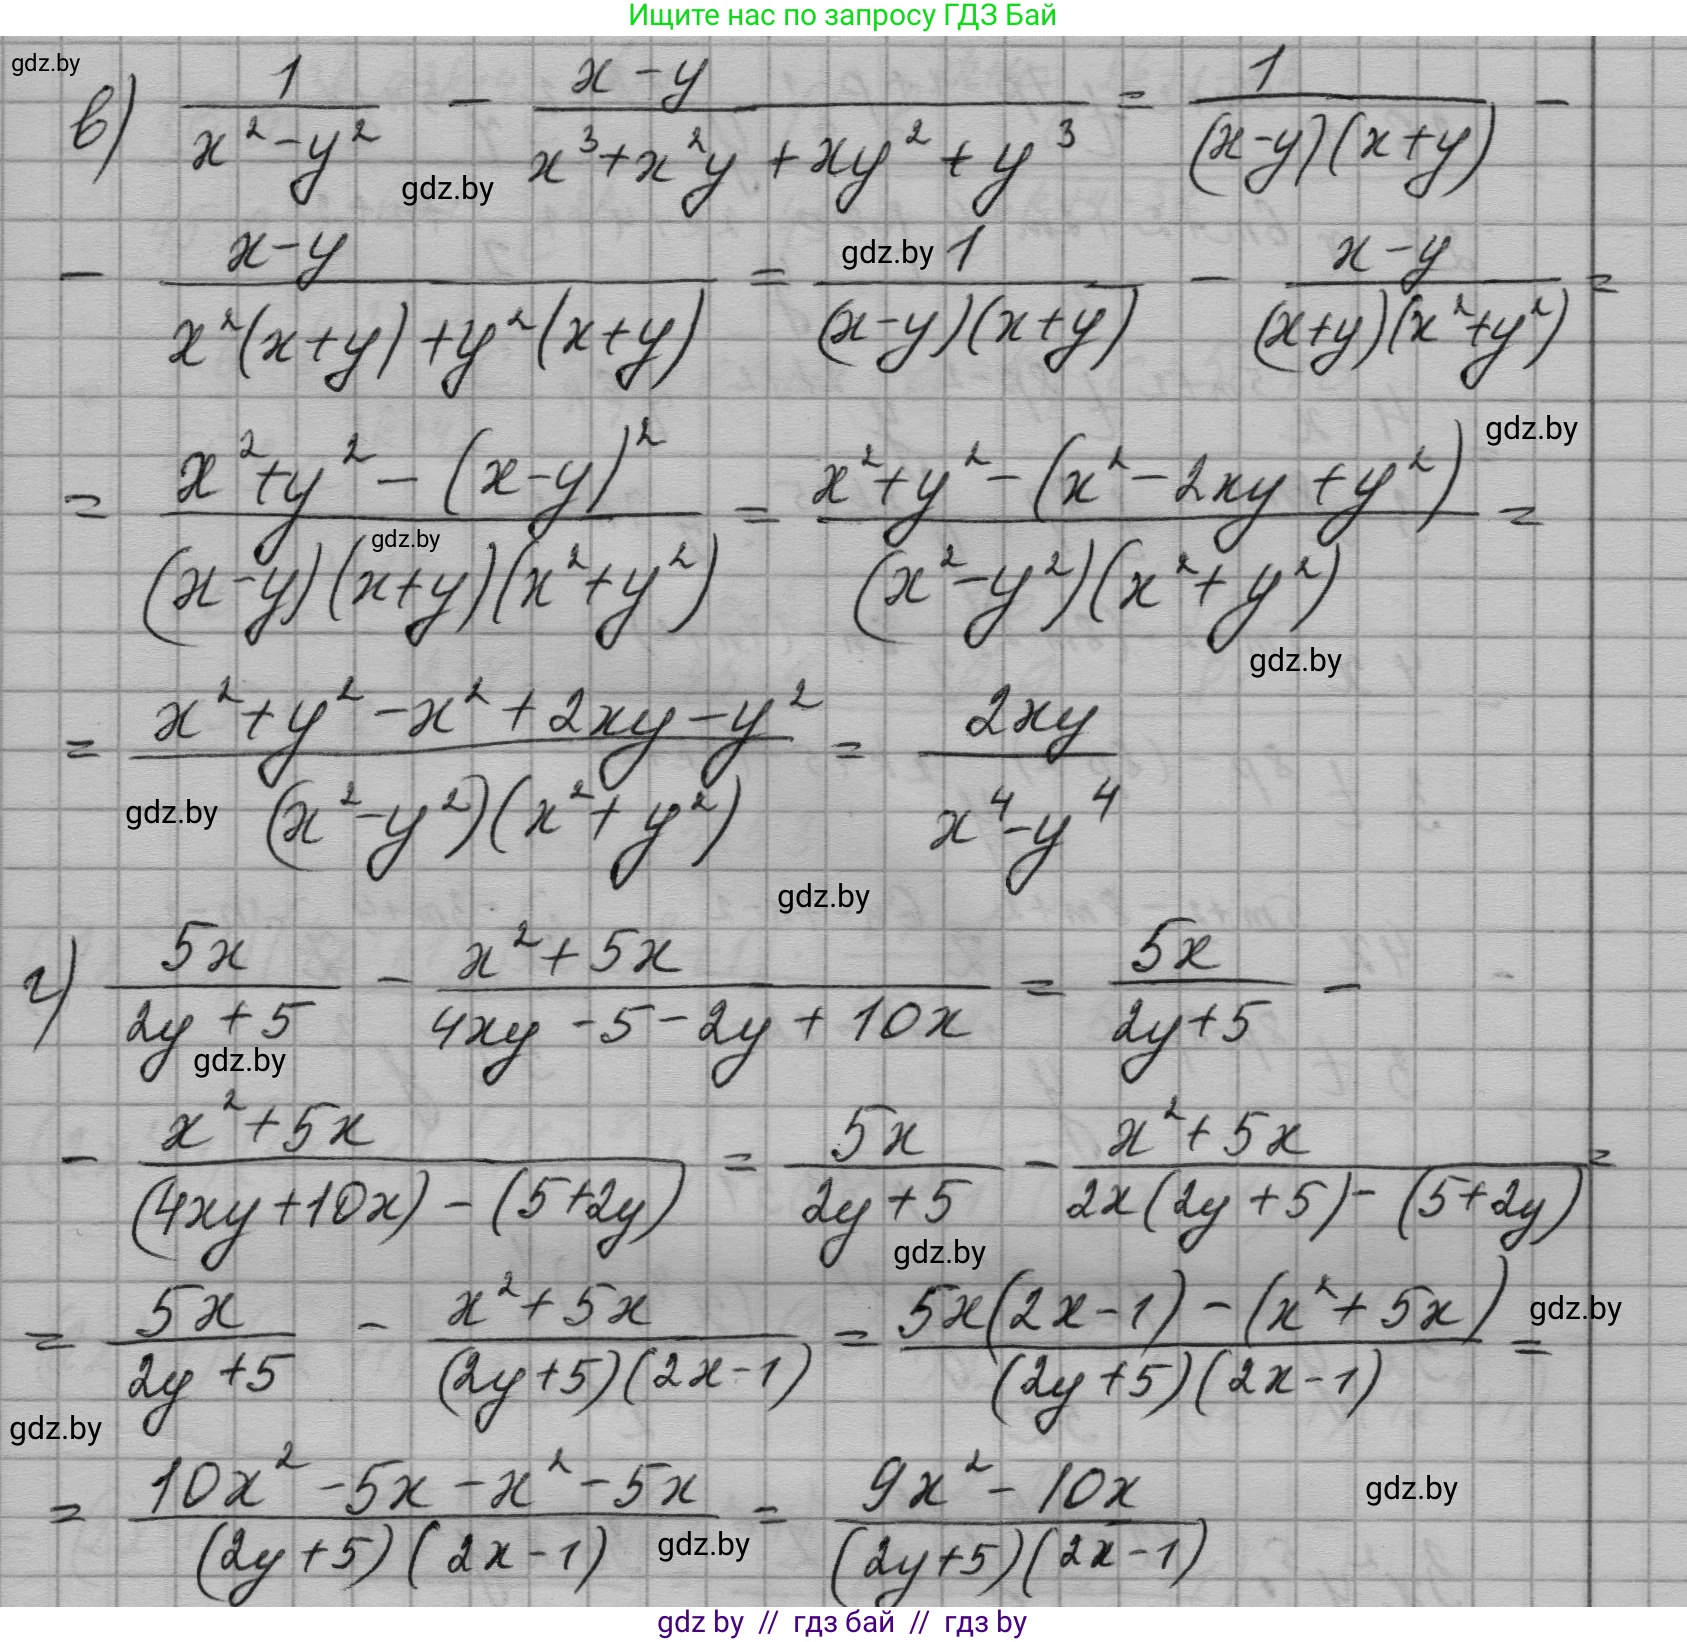 Ищите нас по запросу ГДЗ Бай
gdz.by
в) 1/(x²-y²) - (x-y)/(x³+x²y+xy²+y³) = 1/((x-y)(x+y)) -
gdz.by
- (x-y)/(x²(x+y)+y²(x+y)) = 1/((x-y)(x+y)) - (x-y)/((x+y)(x²+y²)) =
gdz.by
gdz.by
= (x²+y²-(x-y)²)/((x-y)(x+y)(x²+y²)) = (x²+y²-(x²-2xy+y²))/((x²-y²)(x²+y²)) =
gdz.by
gdz.by
= (x²+y²-x²+2xy-y²)/((x²-y²)(x²+y²)) = 2xy/(x⁴-y⁴)
gdz.by
gdz.by
г) 5x/(2y+5) - (x²+5x)/(4xy-5-2y+10x) = 5x/(2y+5) -
gdz.by
- (x²+5x)/((4xy+10x)-(5+2y)) = 5x/(2y+5) - (x²+5x)/(2x(2y+5)-(5+2y)) =
gdz.by
= 5x/(2y+5) - (x²+5x)/((2y+5)(2x-1)) = (5x(2x-1)-(x²+5x))/((2y+5)(2x-1)) =
gdz.by
gdz.by
= (10x²-5x-x²-5x)/((2y+5)(2x-1)) = (9x²-10x)/((2y+5)(2x-1))
gdz.by
gdz.by
gdz by // гдз бай // гдз by